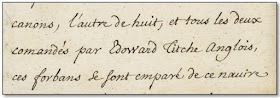 canons, l'autre de huit, et tous les deux
comandés par Edoward Titche Anglois,
ces forbans se sont emparé de ce navire